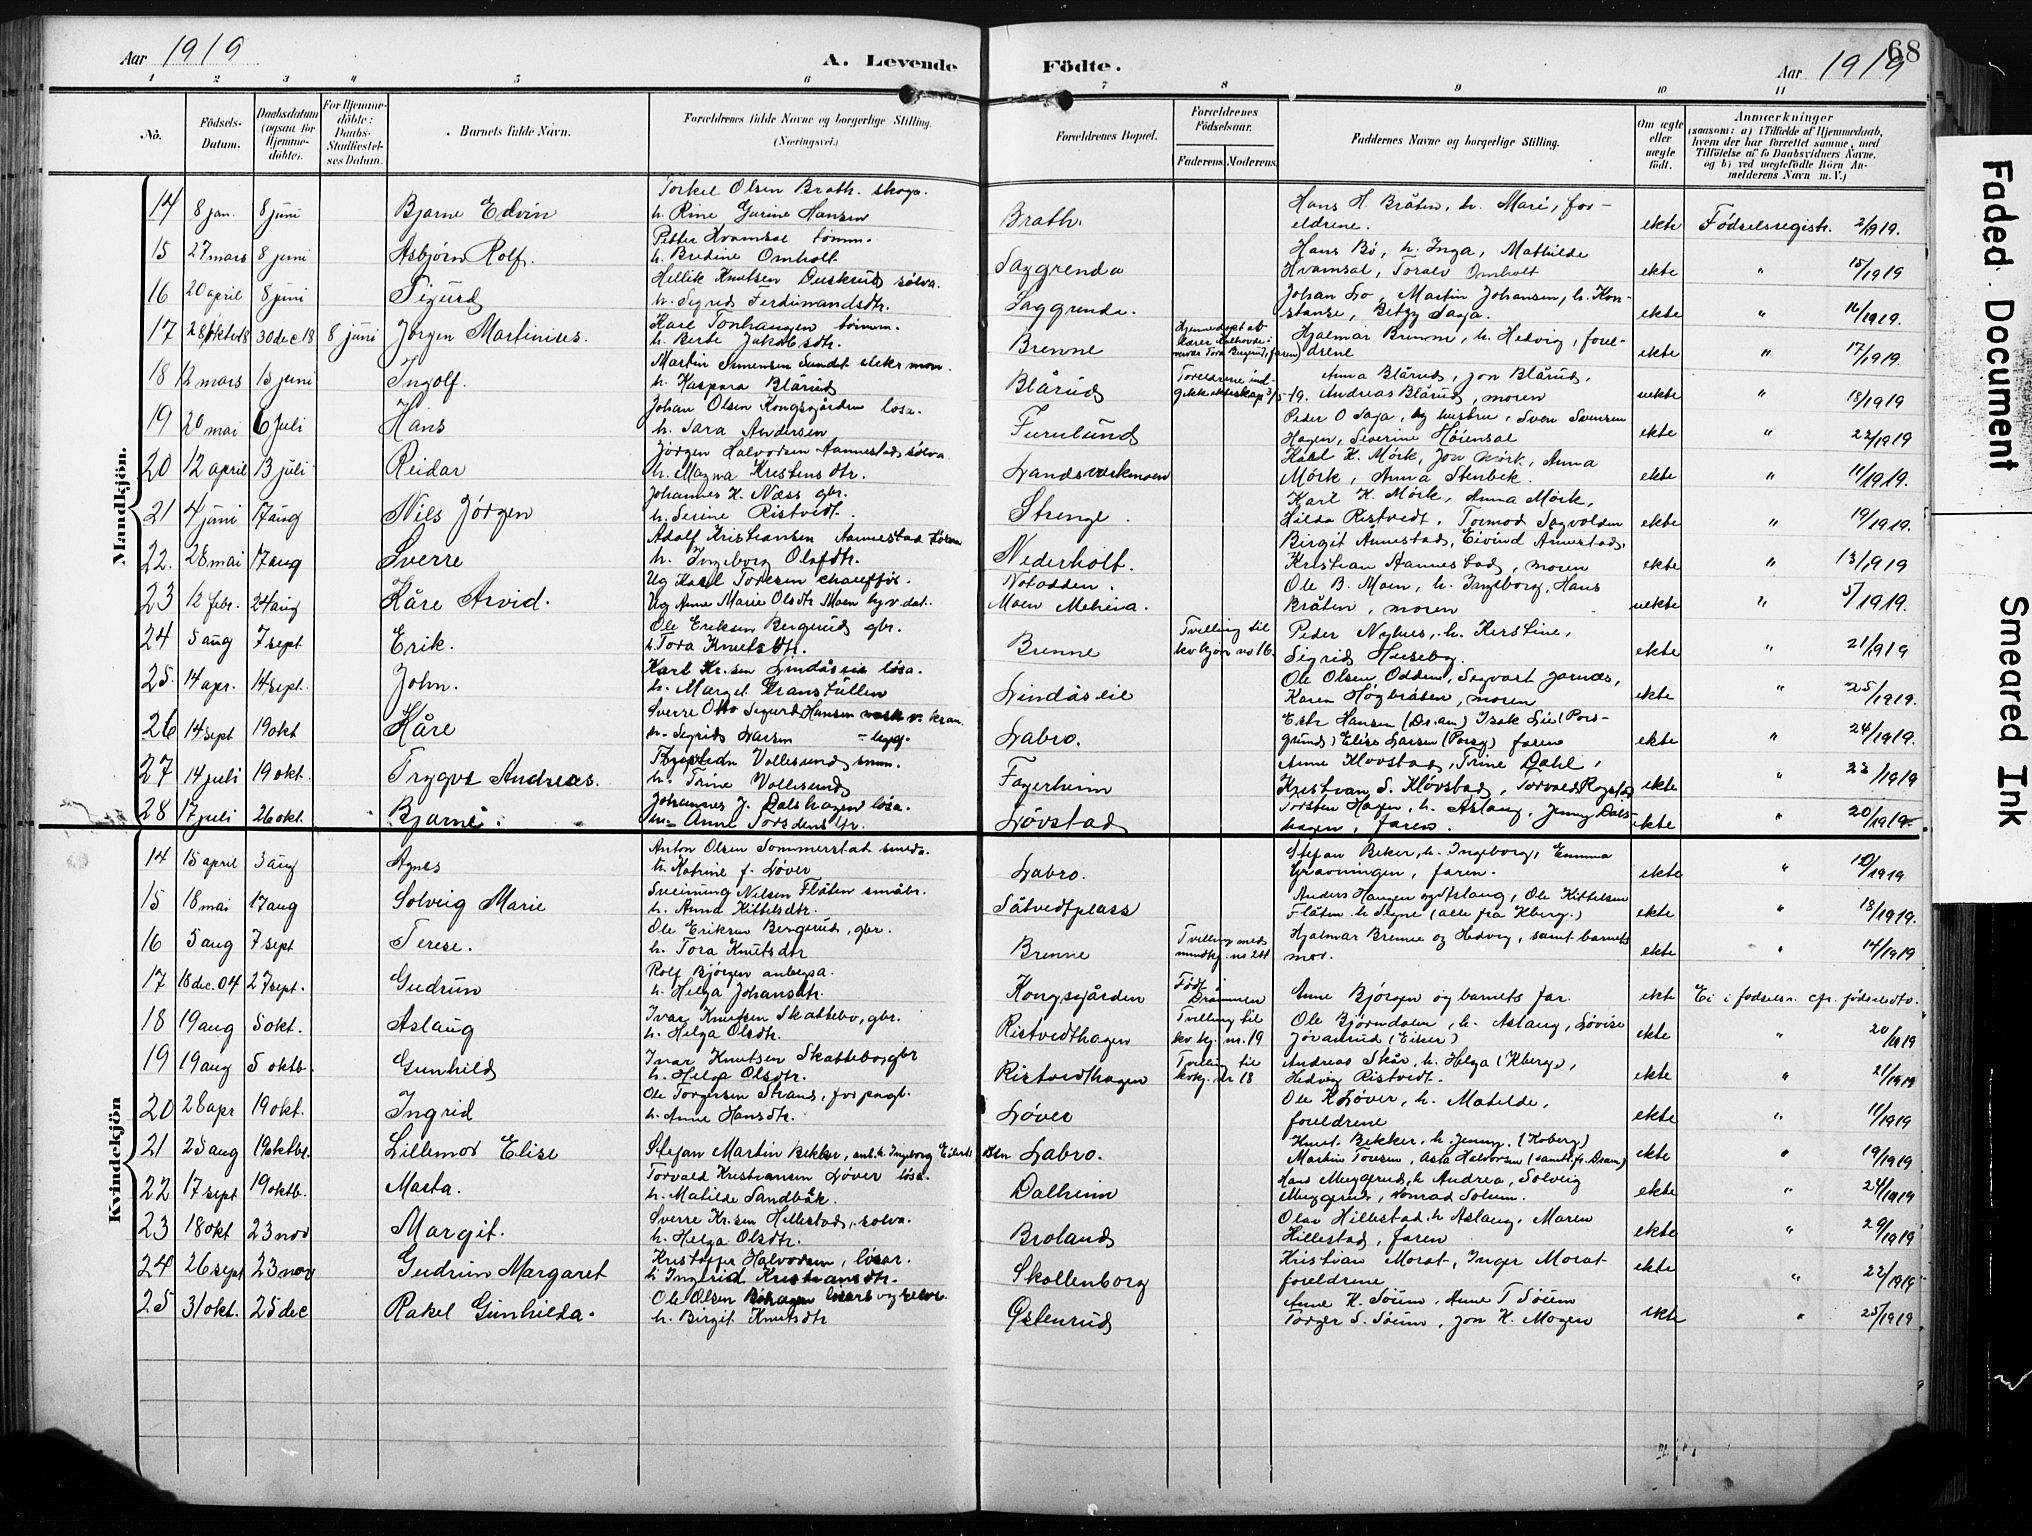 Aar 1919 A. Levende Födte. Aar 1919 68
1 2 3 4 5 6 7 8 9 10 11
No. Födsels-Datum. Daabsdatum (ogsaa for Hjemme-döbte). For Hjemme-döbte: Daabs-Stadfæstel-ses Datum. Barnets fulde Navn. Forældrenes fulde Navne og borgerlige Stilling. (Næringsvei.) Forældrenes Bopæl. Forældrenes Födselsaar. Faderens. Moderens. Faddernes Navne og borgerlige Stilling. Om ægte eller uægte födt. Anmærkninger (saasom: a) i Tilfælde af Hjemmedaab, hvem der har forrettet samme, med Tilföielse af to Daabsvidners Navne, og b) ved uægtefödte Börn Anmelderens Navn m. V.)
Mandkjön.
14 8 jan. 8 juni Bjarne Edvin Torkel Olsen Brath. skoga.
h. Rine Gurine Hansen Brath. Hans H. Bråten, h. Mari, for-
eldrene. ekte Fødselsregistr. 2/1919.
15 27 mars 8 juni Asbjørn Rolf. Petter Kvamsal tømm.
h. Bredine Omholt Saggrenda Hans Bö, h. Inga, Mathilde
Kvamsal, Toralv Omholt ekte " 15/1919
16 20 april 8 juni Sigurd Hellik Knutsen sølva.
h. Sigrid Ferdinandsdtr. Saggrenda. Johan Lo, Martin Johansen, h. Kon-
stanse, Betzy Saga. ekte " 16/1919.
17 28/oktb 18 30 dec 18 8 juni Jørgen Martinius. Karl Tonhaugen tømm.
h. Berte Jakobsdtr. Brenne Hjemmedøpt Hjalmar Brenne, h. Hedvig, forel-
drene ekte " 17/1919.
18 12 mars 15 juni Ingolf. Martin Simensen Sundet elektr mon.
h. Kaspara Blårud Blårud Foreldrene ind-
gikk ekteskap 3/5-19. Anna Blårud, Jon Blårud,
Andreas Blårud, moren uekte " 18/1919
19 20 mai 6 juli Hans Johan Olsen Kongsgården løsa.
h. Sara Andersen Furulund Peder O Saga, og hustru, Sven Svensen
Hagen, Severine Høiensal ekte " 22/1919
20 12 april 13 juli Reidar Jörgen Halvorsen Aannestad sølva
h. Magna Kristensdtr. Landsverkmoen Karl K. Mörk, Jon Mörk, Anna
Mörk, Anna Stenbek. ekte " 11/1919.
21 4 juni 17 aug Nils Jørgen Johannes K. Næss gbr.
h. Serine Ristvedt. Strenge. Karl K. Mörk, Anna Mörk,
Hilda Ristvedt, Tormod Sagvolden ekte " 19/1919.
22. 28 mai 17 aug Sverre Adolf Kristiansen Aannestad sølva
h. Ingeborg Olafdtr. Nederholt. Birgit Annestad, Eivind Annestad,
Kristian Aannestad, moren ekte " 13/1919
23 12 febr. 24 aug Kåre Arvid. Ug Karl Toresen chauffør
Ug Anne Marie Olsdtr Moen bg.v.dat. Notodden.
Moen Meheia. Ole B. Moen, h. Ingeborg, Hans
Bråten, moren uekte " 5/1919.
24 5 aug 7 sept Erik. Ole Eriksen Bergerud gbr.
h. Tora Knutsdtr. Brenne Tvilling til
kv kjøn no 16. Peder Nyhus, h. Kerstine,
Sigrid Huseby. ekte " 21/1919
25. 14 apr. 14 sept. John. Karl Kr.sen Lindåseie løsa.
h. Margit Lindåseie Ole Olsen Odden, Sigvart Jarnæs,
Karen Høgbråten, moren ekte " 25/1919.
26 14 sept 19 okt Kåre Sverre Otto Sigurd Hansen
h. Sigrid Larsen Labro. Hansen (Dr.am) Isak Lie (Pors-
grund) Elise Larsen (Porsg) faren ekte " 24/1919.
27 14 juli 19 okt. Trygve Andreas. Vollesund
h. Trine Vollesund Fagerheim Anne Klovstad, Trine Dahl,
Kristian S. Kløvstad, Torvald Rogstad ekte " 23/1919
28 17 juli 26 okt. Bjarne. Johannes J. Dalshagen løsa.
h. Anne Torsdensdtr. Løvstad Torsten Hagen, h. Aslaug, Jenny Dals-
hagen, faren. ekte " 20/1919
Kvindekjön
14 15 april 3 aug Agnes Anton Olsen Sommerstad smeda.
h. Katrine f. Løver Labro. Stefan Beker, h. Ingeborg, Emma
Gravningen, faren. ekte " 10/1919
15 18 mai 17 aug Solveig Marie Sveinung Nilsen Flåten småbr.
h. Anna Kittelsdtr. Såtvedtplass Anders Hangen og Aslaug, Ole Kittelsen
Flåten h. Signe (alle fra Kberg.) ekte " 18/1919.
16 5 aug 7 sept Terese. Ole Eriksen Bergerud, gbr.
h. Tora Knutsdtr Brenne Tvilling med
mandkj. no 24 Hjalmar Brenne og Hedvig, samt barnets
mor. ekte " 14/1919
17 18 dec. 04 27 sept. Gudrun Rolf Bjørgen anbegsa.
h. Helga Johansdtr. Kongsgården Født i
Drammen Anne Bjørgen og barnets far. ekte Ei i fødselsr. cfr. fødselsatt.
18 19 aug 5 okt. Aslaug Ivar Knutsen Skattebo, gbr.
h. Helga Olsdtr. Ristvedthagen Tvilling til
kv kj. nr. 19 Ole Bjørndalen, h. Aslaug, Lovise
(Eiker) ekte " 20/1919
19 19 aug 5 oktb. Gunhild Ivar Knutsen Skattebo, gbr
h. Helga Olsdtr. Ristvedthagen Tvilling til
kvkj. nr 18 Andreas Skår, h. Helga (Kberg),
Hedvig Ristvedt. ekte " 21/1919
20 28 apr 19 okt. Ingrid Ole Torgersen Strand, forpagt.
h. Anne Hansdtr. Løver Ole K Løver, h. Matilde,
foreldrene ekte " 11/1919
21 25 aug 19 oktbr. Lillemor Elise Stefan Martin Bekker, anl. h. Ingeborg Labro. Knut Bekker, h. Jenny, (Kberg)
Martin Toresen, Asta Halvorsen (samtl. fr. Dram) ekte " 19/1919
22 17 sept 19 oktb. Marta. Torvald Kristiansen Løver løsa.
h. Matilde Sandbåk. Dalheim Hans Muggerud, h. Andrea, Solveig
Muggerud, Konrad Solum. ekte " 24/1919
23 18 okt 23 nov Margit. Sverre Kr.sen Hillestad, sølva.
h. Helga Olsdtr. Broland Olav Hillestad, h Aslaug, Maren
Hillestad, faren ekte " 29/1919
24 26 sept 23 nov Gudrun Margaret Kristoffer Halvorsen, løsar.
h Ingerid Kristiansdtr. Skollenborg Kristian Morat, Inger Morat
foreldrene ekte " 22/1919
25 31 okt. 25 dec Rakel Gunhilda. Ole Olsen
h. Birgit Knutsdtr Østenrud Anne K. Söum, Anne T Söum
Torger S. Söum, Jon K. Mogen ekte " 25/1919
Faded Document
Smeared Ink